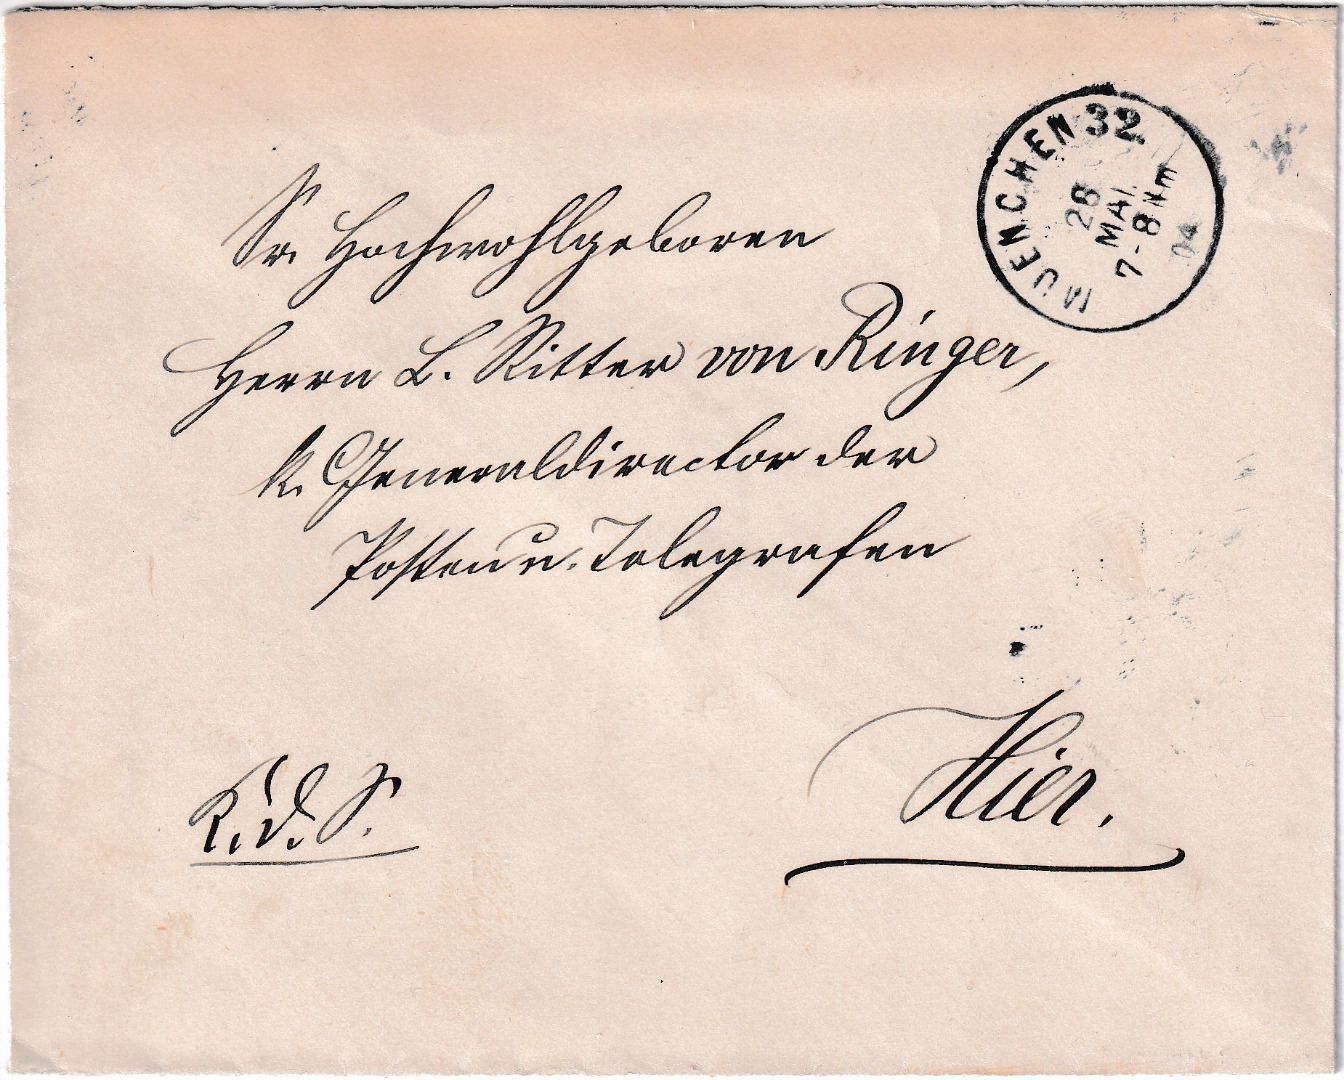 MUENCHEN 32.
28
MAI.
7-8 Nm
04
Sr. Hochwohlgeboren
Herrn L. Ritter von Ringer,
K. Generaldirector der
Posten u. Telegrafen
Hier.
K. d. S.